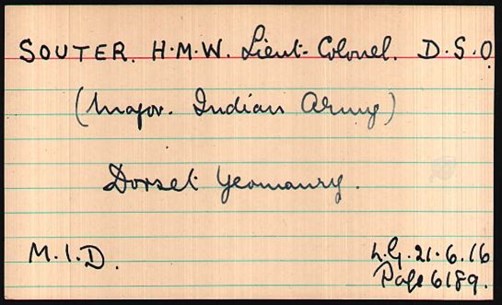 SOUTER. H.M.W. Lieut-Colonel. D.S.O
(Major. Indian Army)
Dorset Yeomanry.
M.I.D.
L.G. 21.6.16
Page 6189.